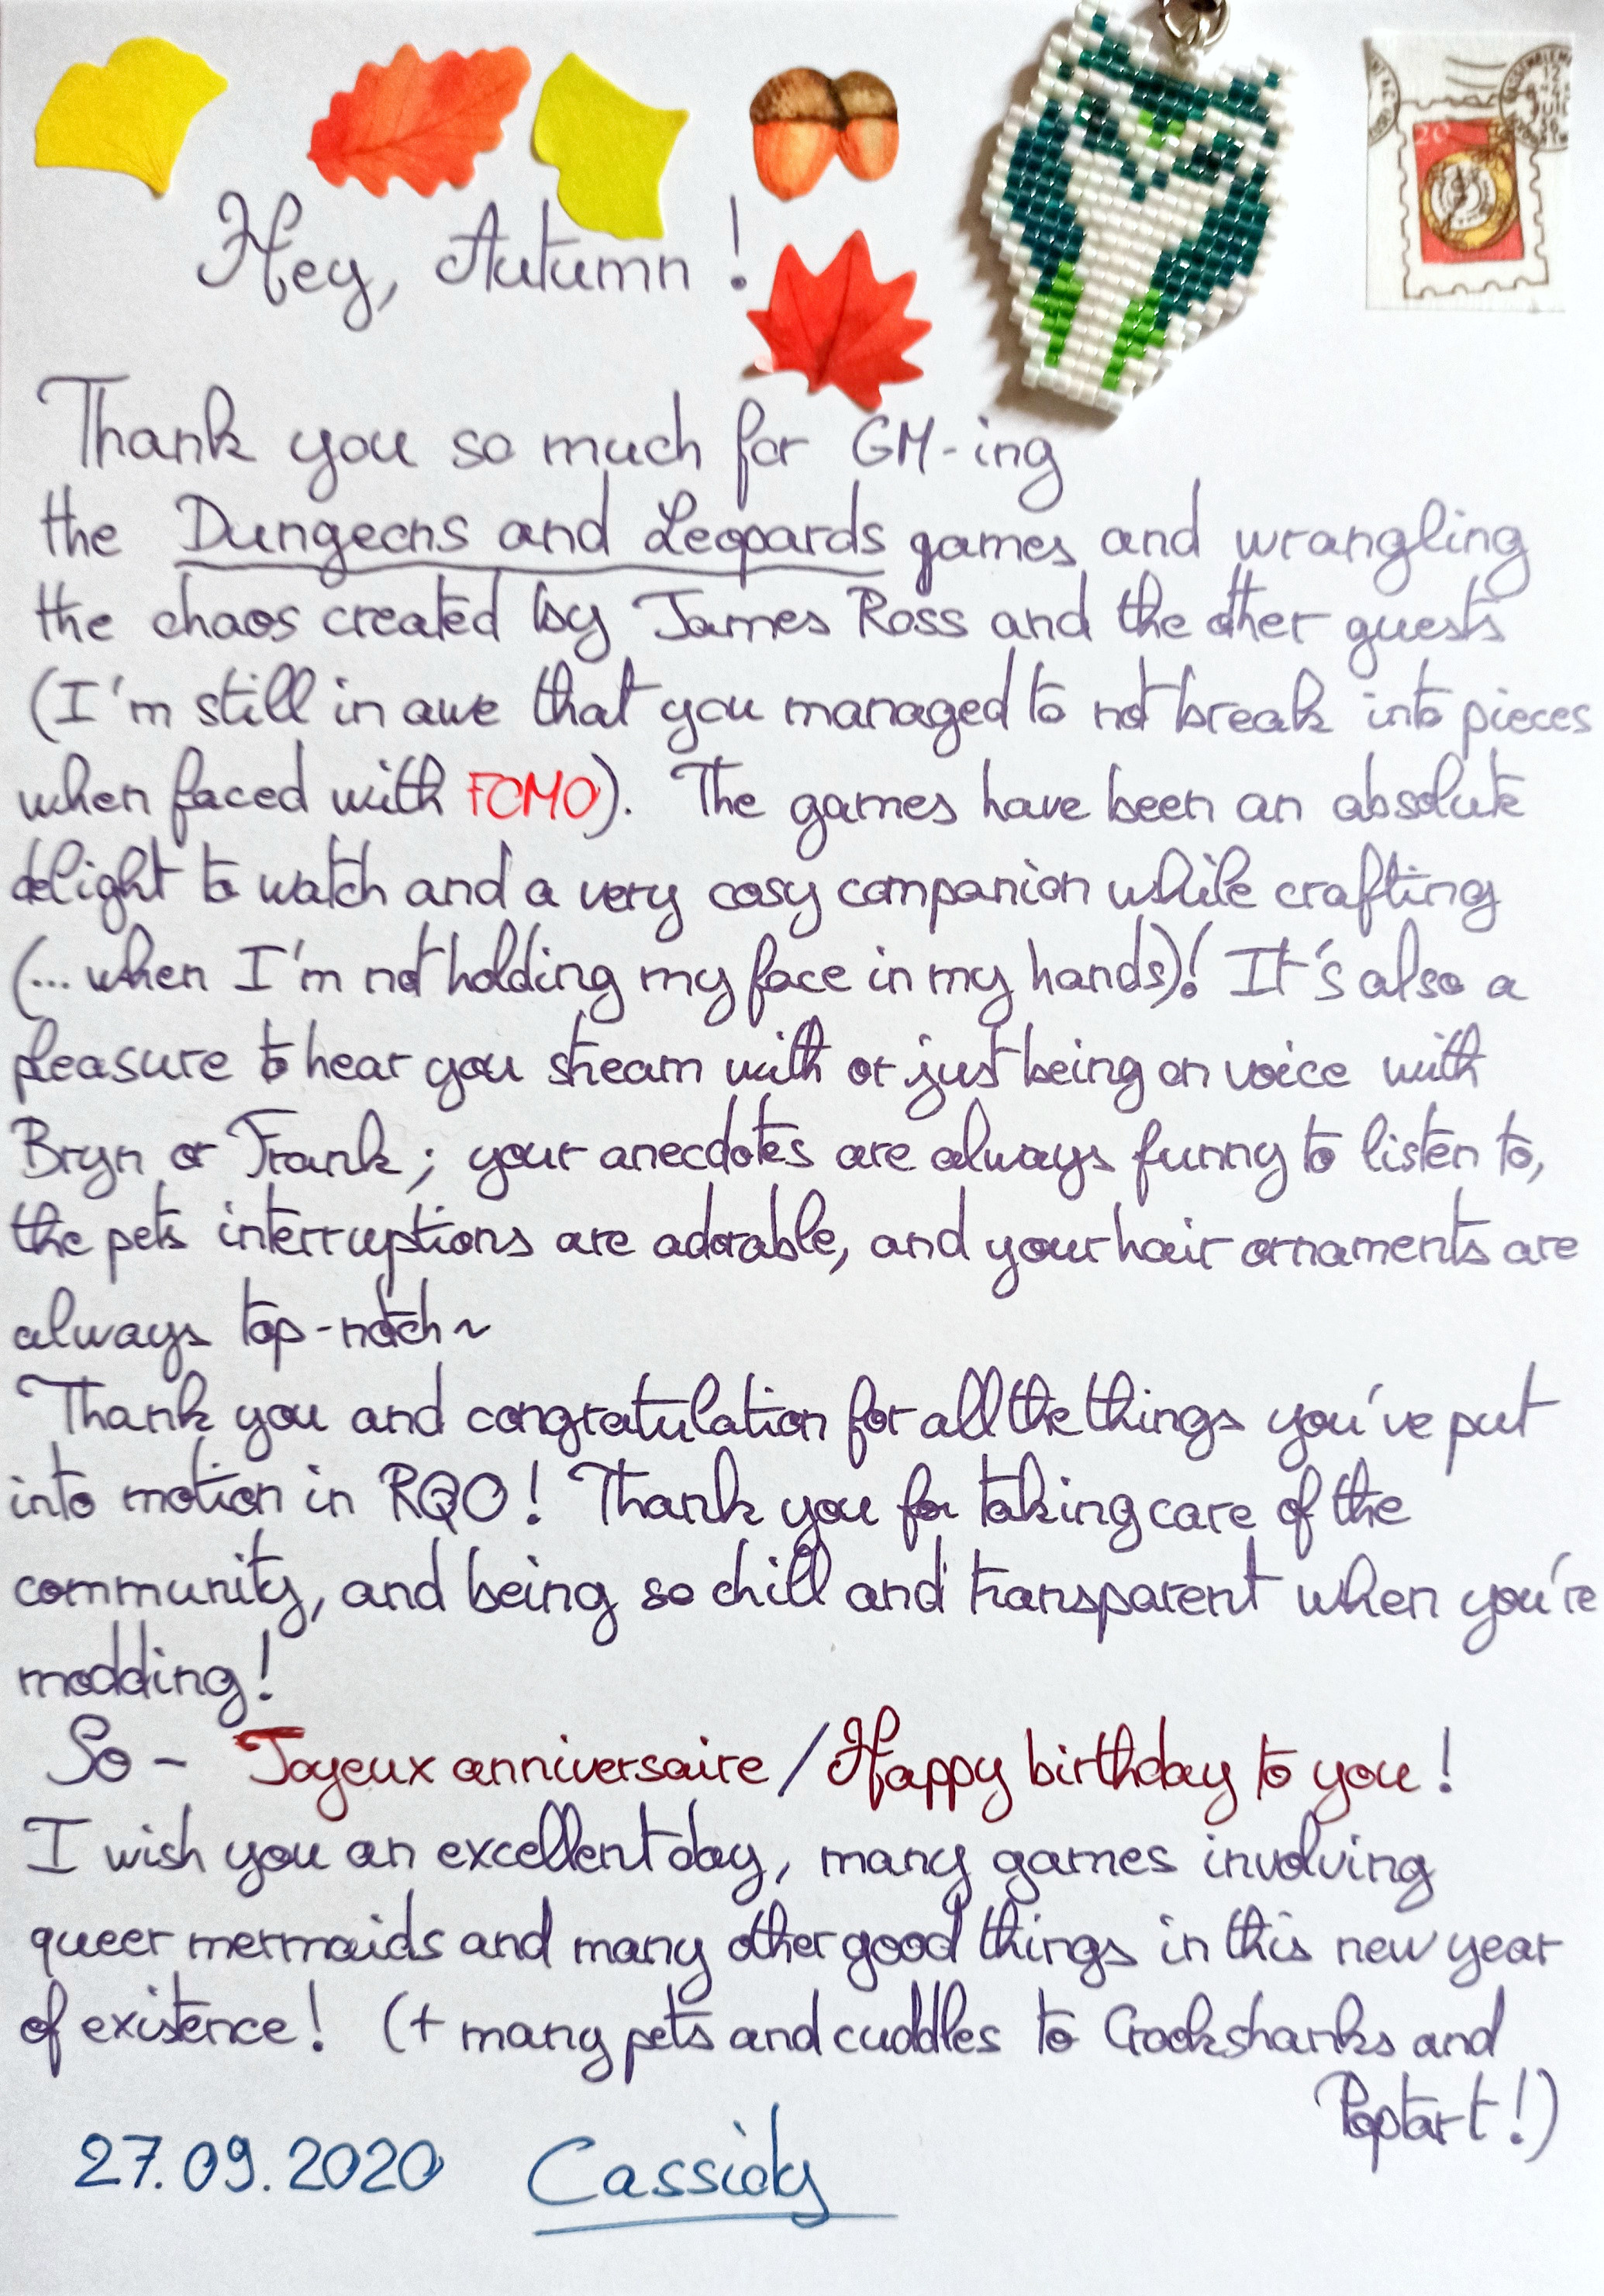 20
12
JUIL
Hey, Autumn !
Thank you so much for GM-ing
the Dungeons and Leopards games and wrangling
the chaos created by James Ross and the other guests
(I'm still in awe that you managed to not break into pieces
when faced with FOMO). The games have been an absolute
delight to watch and a very cosy companion while crafting
(... when I'm not holding my face in my hands)! It's also a
pleasure to hear you stream with or just being on voice with
Bryn or Frank ; your anecdotes are always funny to listen to,
the pets interruptions are adorable, and your hair ornaments are
always top-notch ~
Thank you and congratulation for all the things you've put
into motion in RQO ! Thank you for taking care of the
community, and being so chill and transparent when you're
modding !
So - Joyeux anniversaire / Happy birthday to you !
I wish you an excellent day, many games involving
queer mermaids and many other good things in this new year
of existence ! (+ many pets and cuddles to Crookshanks and
Poptart !)
27.09.2020 Cassidy